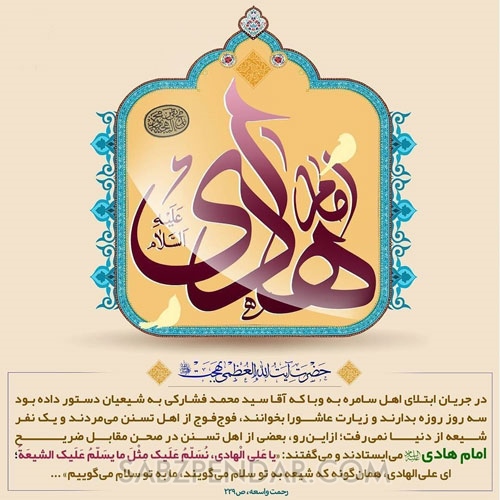 امام هادی
عَلَيْهِ السَّلَام
حضرت آیت الله العظمی بهجت
در جریان ابتلای اهل سامره به وبا که آقا سید محمد فشارکی به شیعیان دستور داده بود
سه روز روزه بدارند و زیارت عاشورا بخوانند، فوج‌فوج از اهل تسنن می‌مردند و یک نفر
شیعه از دنیا نمی‌رفت؛ ازاین‌رو، بعضی از اهل تسنن در صحن مقابل ضریح
امام هادی می‌ایستادند و می‌گفتند: «یا عَلیِ الْهادی، نُسَلِّمُ عَلَیكَ مِثْلَ ما یسَلِّمُ عَلَیكَ الشّیعَهُ؛
ای علی‌الهادی، همان‌گونه که شیعه به تو سلام می‌گویند، ما به تو سلام می‌گوییم» ...
SABZPENDAR.COM
رحمت واسعه، ص ۲۲۹